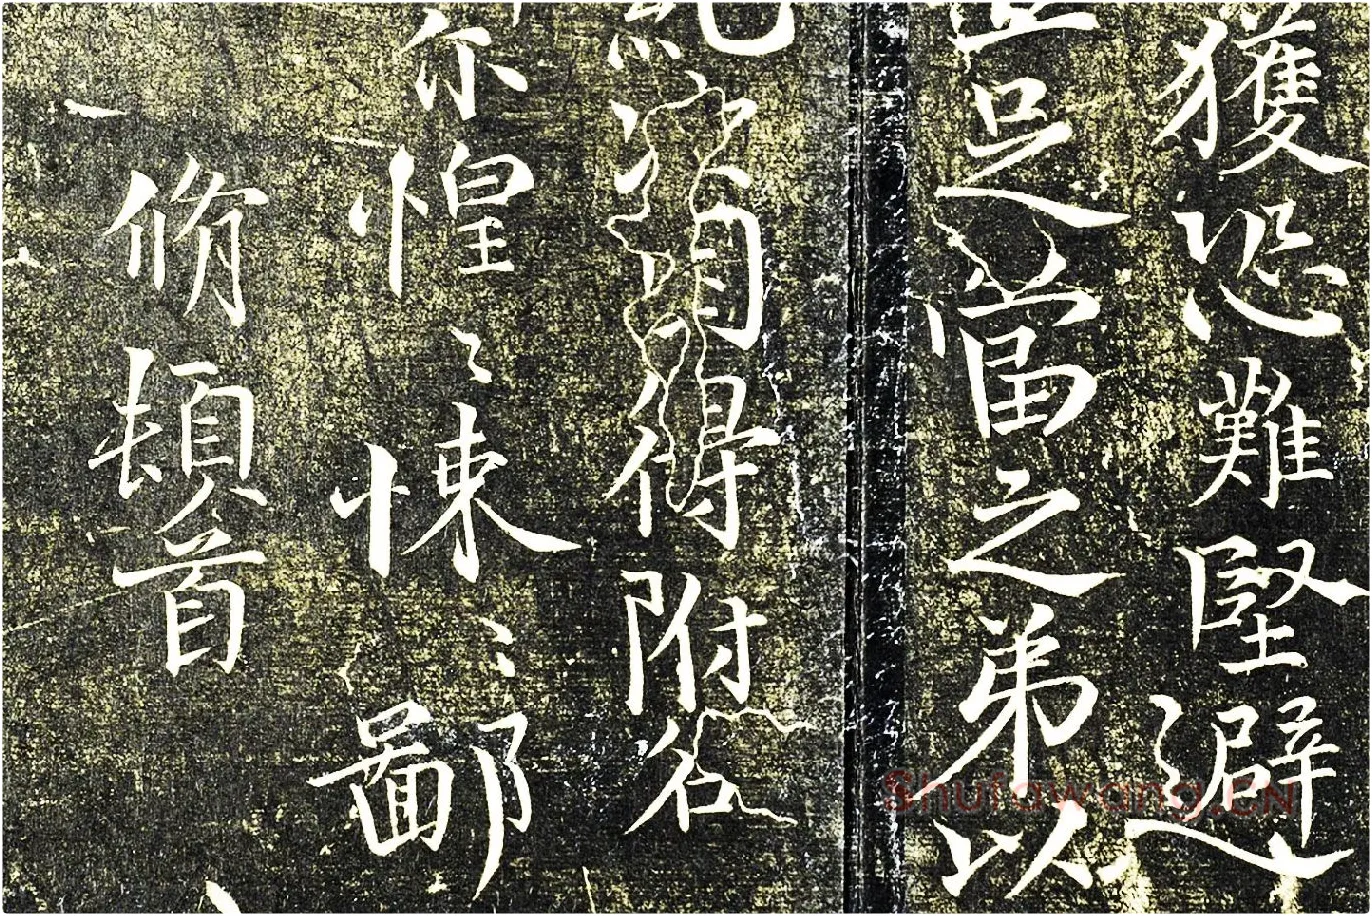 獲恐難堅避
足當之弟以
得附名
惶〻悚〻鄙
脩頓首
Shufawang.CN